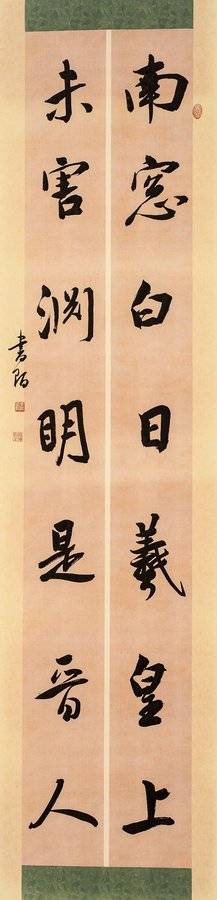 南窓白日羲皇上
未害渊明是晋人
書陌